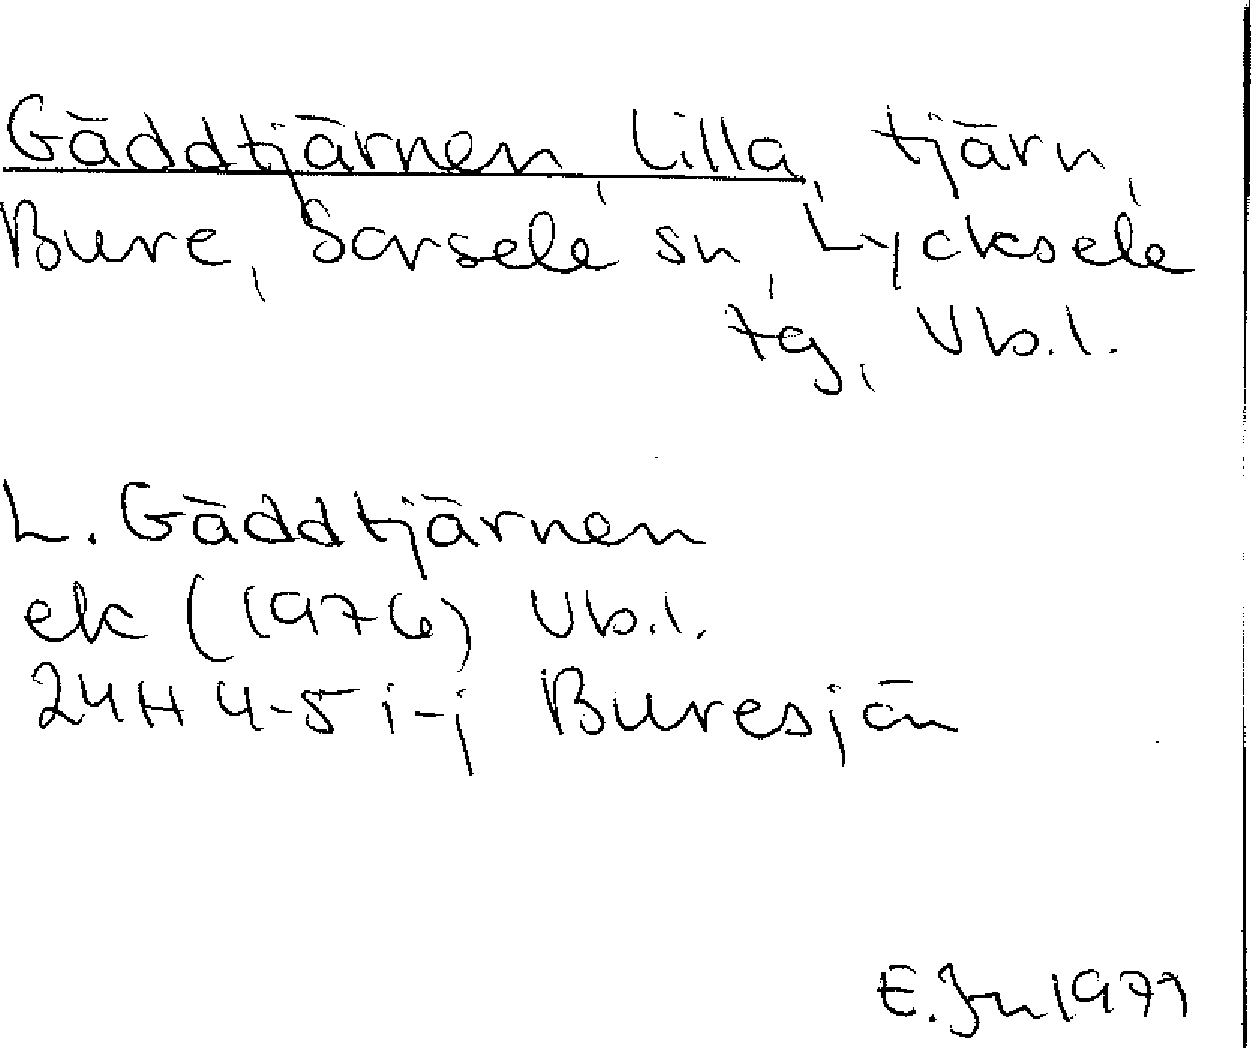 Gäddtjärnen, Lilla, tjärn,
Bure, Sorsele sn, Lycksele
tg, Vb.l.
L. Gäddtjärnen
ek (1976) Vb.l.
24H 4-5 i-j Buresjön
E. Jn 1977